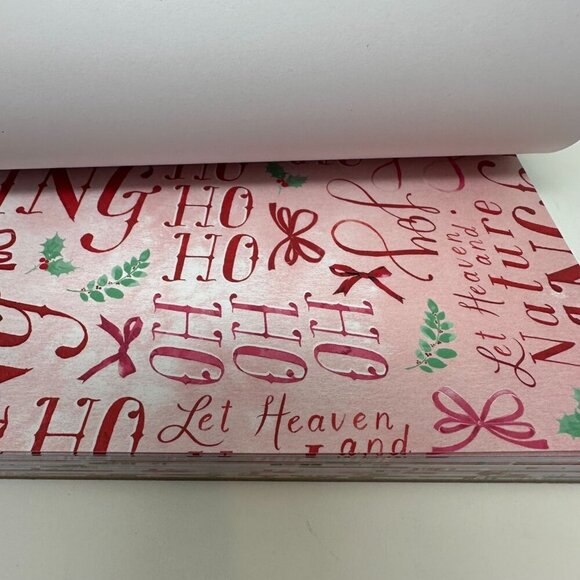 ING
HO
HO
HO
Joy
Let Heaven
and
Nature
HO
HO
HO
HO
Let Heaven
and